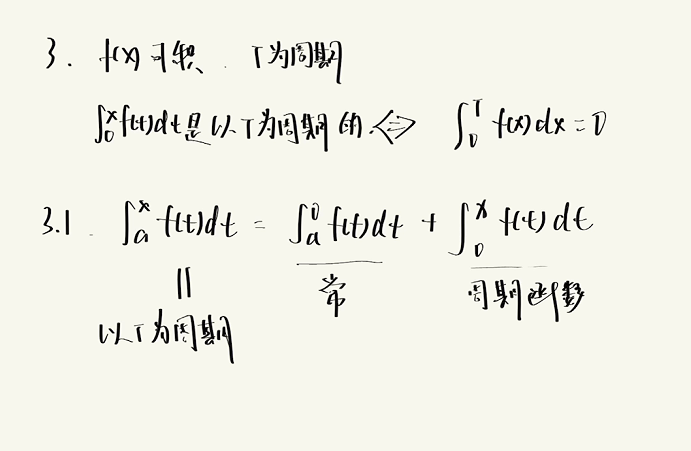 3. f(x)可积. T为周期
∫₀ˣf(t)dt是以T为周期的<=> ∫₀ᵀ f(x)dx=0
3.1. ∫ₐˣ f(t)dt = ∫ₐ⁰ f(t)dt + ∫₀ˣ f(t)dt
|| 常 周期函数
以T为周期